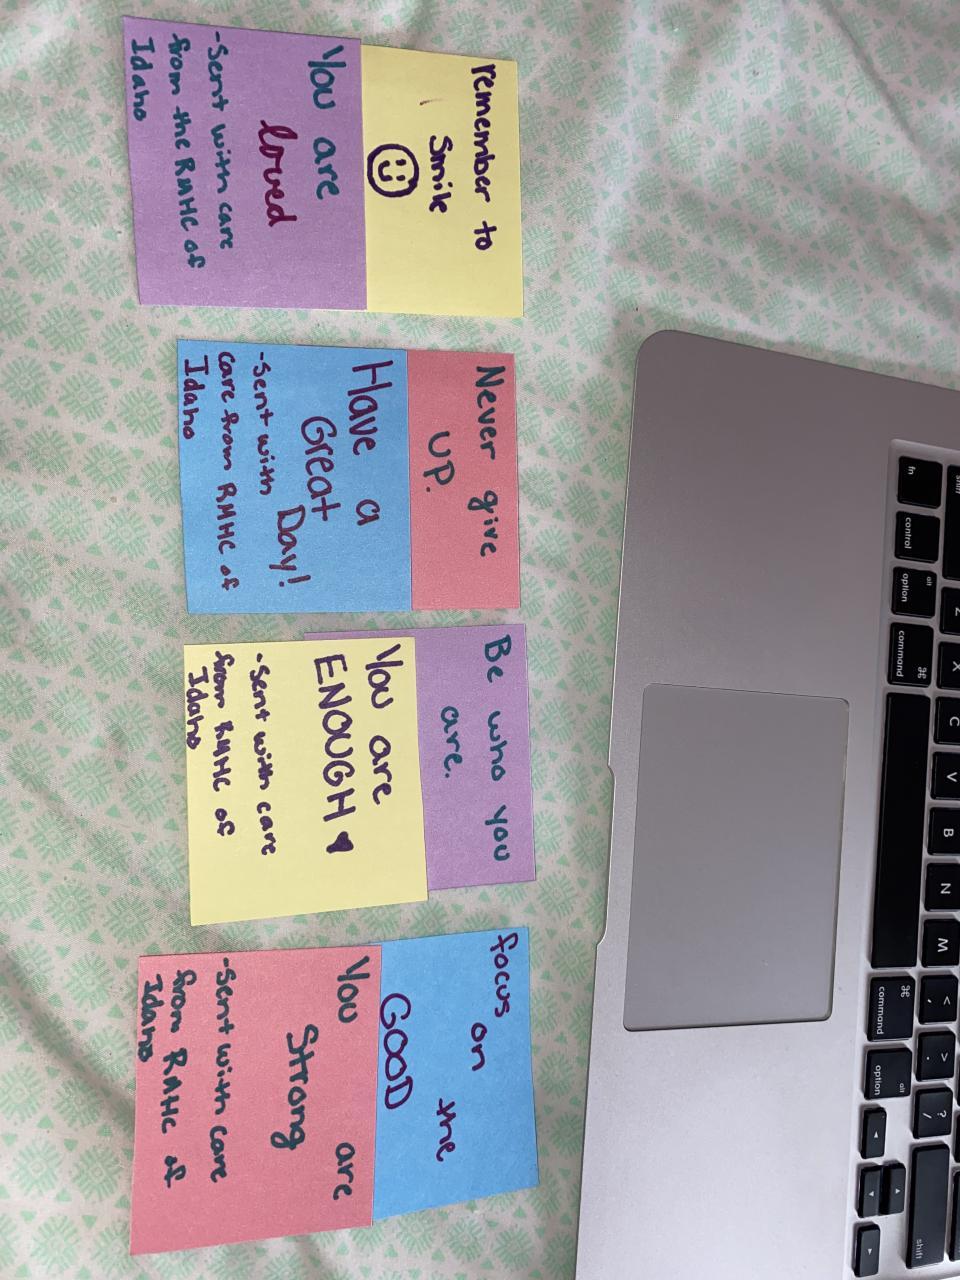 shift Z X C V B N M < , > . ? / shift
fn control alt option ⌘ command ⌘ command alt option ◄ ▲ ▼ ►
remember to
smile
You are
loved
-Sent with care
from the RMHC of
Idaho
Never give
UP.
Have a
Great
Day!
-Sent with
care from RMHC of
Idaho
Be who you
are.
You are
ENOUGH ♥
-Sent with care
from RMHC of
Idaho
focus on the
GOOD
You are
Strong
-Sent with care
from RMHC of
Idaho